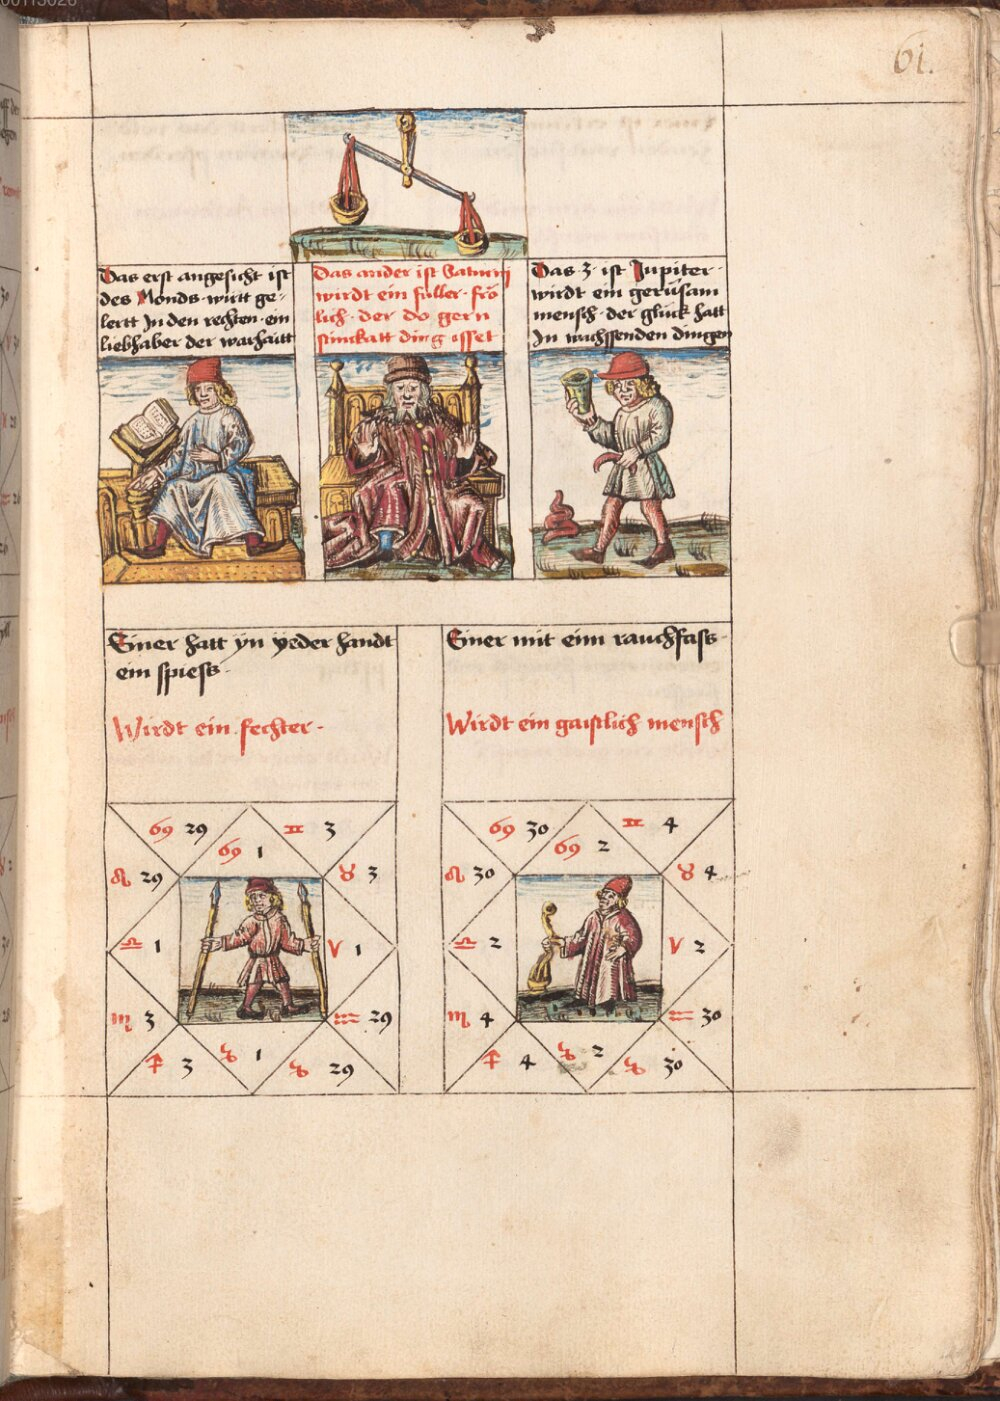 00113026
61.
Das erst angesicht ist
des Monds · wirt ge-
lertt In den rechten · ein
liebhaber der warhaitt
Das ander ist Saturnj
wirdt ein fuller · frö
lich · der do gern
stinckatt ding isset
Das · 3 · ist Jupiter ·
wirdt ein gerüsam
mensch · der glück hatt
In wachssenden dingen
Einer hatt yn yeder handt
ein spiess ·
Wirdt ein fechter ·
Einer mit eim rauchfass ·
Wirdt ein gaistlich mensch
♋ 29 ♊ 3
♋ 1
♌ 29 ♉ 3
♎ 1 ♈ 1
♏ 3 ♒ 29
♐ 3 ♑ 1 ♑ 29
♋ 30 ♊ 4
♋ 2
♌ 30 ♉ 4
♎ 2 ♈ 2
♏ 4 ♒ 30
♐ 4 ♑ 2 ♑ 30